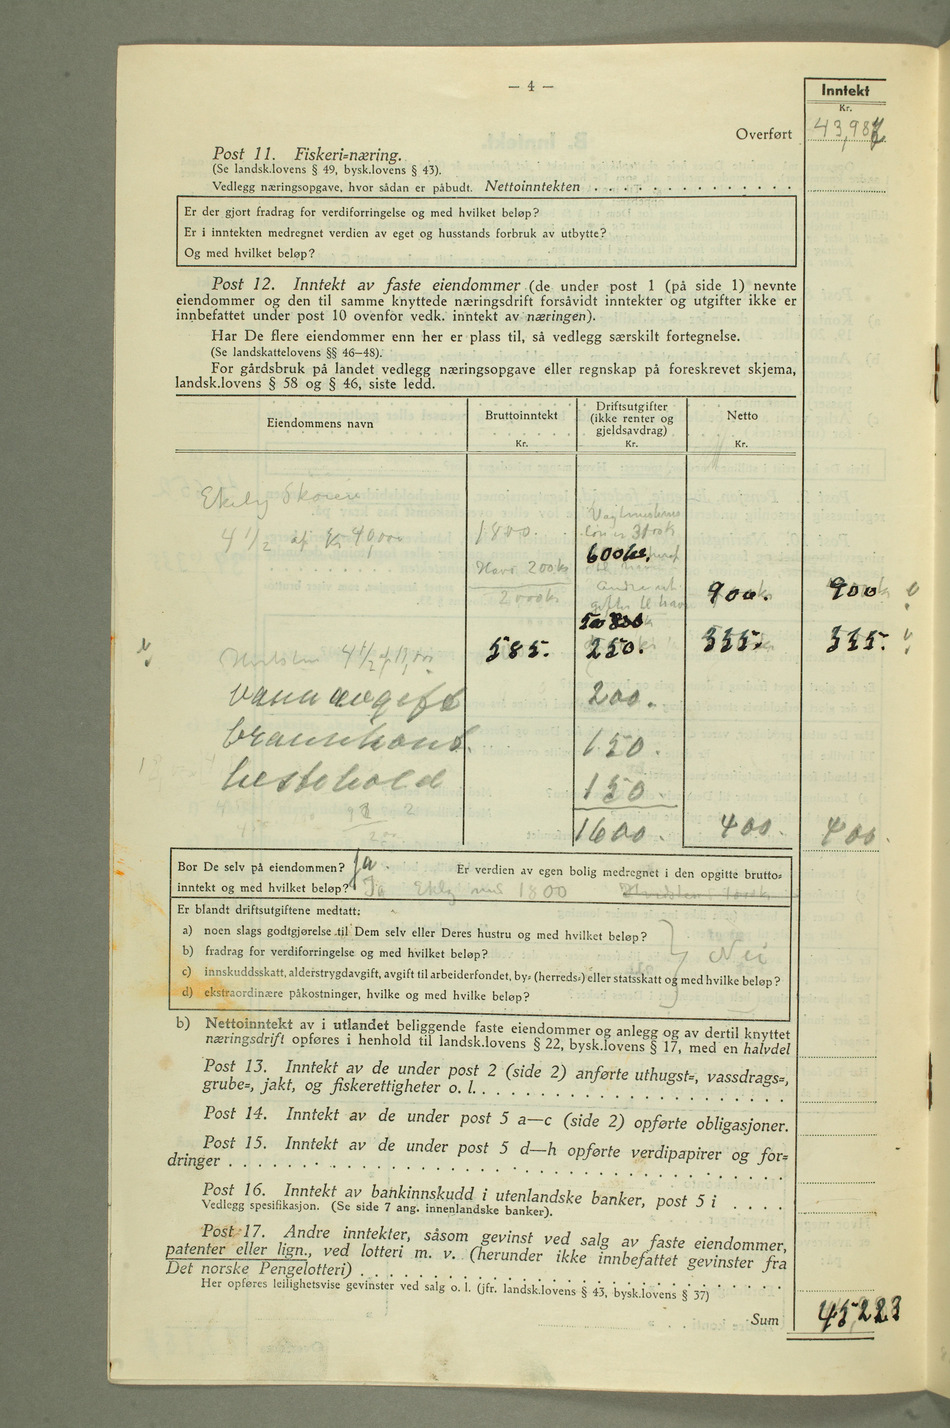 — 4 —
Inntekt
Kr.
Overført 43,987
Post 11. Fiskeri=næring.
(Se landsk.lovens § 49, bysk.lovens § 43).
Vedlegg næringsopgave, hvor sådan er påbudt. Nettoinntekten . . . . . . . . . . . . . .
Er der gjort fradrag for verdiforringelse og med hvilket beløp?
Er i inntekten medregnet verdien av eget og husstands forbruk av utbytte?
Og med hvilket beløp?
Post 12. Inntekt av faste eiendommer (de under post 1 (på side 1) nevnte
eiendommer og den til samme knyttede næringsdrift forsåvidt inntekter og utgifter ikke er
innbefattet under post 10 ovenfor vedk. inntekt av næringen).
Har De flere eiendommer enn her er plass til, så vedlegg særskilt fortegnelse.
(Se landskattelovens §§ 46—48).
For gårdsbruk på landet vedlegg næringsopgave eller regnskap på foreskrevet skjema,
landsk.lovens § 58 og § 46, siste ledd.
Eiendommens navn
Bruttoinntekt
Kr.
Driftsutgifter
(ikke renter og
gjeldsavdrag)
Kr.
Netto
Kr.
Ekely Skøien
4 1/2 af Kr 40,000 1800.
600kr.
Havi 200kr
2000kr
Andre ut
gifter til have
900. 900
500 800
4 1/2 af 585. 250. 335. 335.
vannavgift 200.
brannkont. 150.
hestehold 150.
1600. 400. 400.
Bor De selv på eiendommen? Ja. Er verdien av egen bolig medregnet i den opgitte brutto=
inntekt og med hvilket beløp? Ja Ekely med 1800
Er blandt driftsutgiftene medtatt:
a) noen slags godtgjørelse til Dem selv eller Deres hustru og med hvilket beløp?
b) fradrag for verdiforringelse og med hvilket beløp? Nei
c) innskuddsskatt, alderstrygdavgift, avgift til arbeiderfondet, by= (herreds=) eller statsskatt og med hvilke beløp?
d) ekstraordinære påkostninger, hvilke og med hvilke beløp?
b) Nettoinntekt av i utlandet beliggende faste eiendommer og anlegg og av dertil knyttet
næringsdrift opføres i henhold til landsk.lovens § 22, bysk.lovens § 17, med en halvdel
Post 13. Inntekt av de under post 2 (side 2) anførte uthugst=, vassdrags=,
grube=, jakt, og fiskerettigheter o. l. . . . . . . . . . . . . . . . . . . . . . .
Post 14. Inntekt av de under post 5 a—c (side 2) opførte obligasjoner.
Post 15. Inntekt av de under post 5 d—h opførte verdipapirer og for=
dringer . . . . . . . . . . . . . . . . . . . . . . . . . . . . . . . . . .
Post 16. Inntekt av bankinnskudd i utenlandske banker, post 5 i . . . .
Vedlegg spesifikasjon. (Se side 7 ang. innenlandske banker).
Post 17. Andre inntekter, såsom gevinst ved salg av faste eiendommer,
patenter eller lign., ved lotteri m. v. (herunder ikke innbefattet gevinster fra
Det norske Pengelotteri) . . . . . . . . . . . . . . . . . . . . . . . . . . . .
Her opføres leilighetsvise gevinster ved salg o. l. (jfr. landsk.lovens § 43, bysk.lovens § 37)
Sum 45223